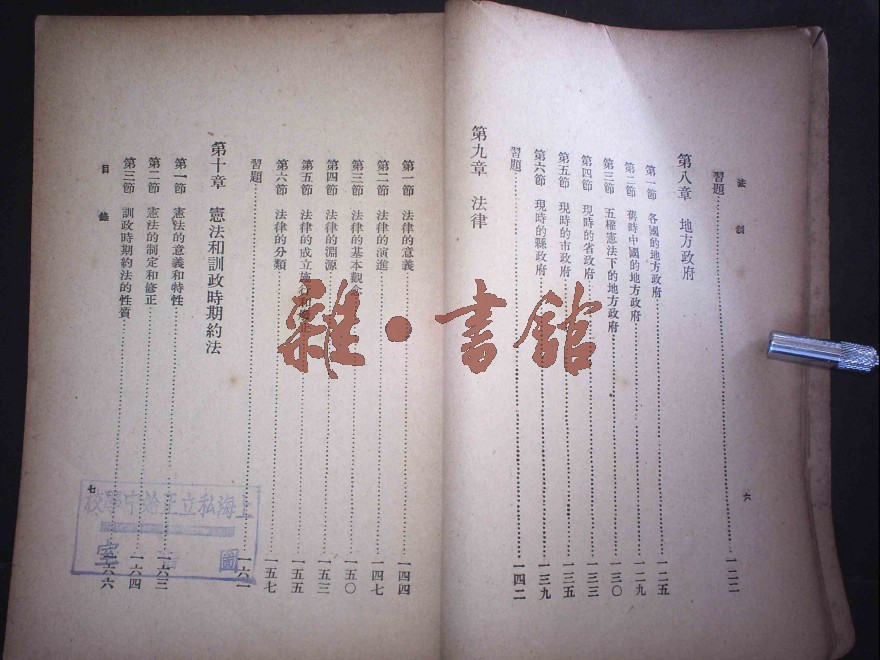 法制
六
習題 一二二
第八章 地方政府
第一節 各國的地方政府 一二五
第二節 舊時中國的地方政府 一二九
第三節 五權憲法下的地方政府 一三〇
第四節 現時的省政府 一三三
第五節 現時的市政府 一三五
第六節 現時的縣政府 一三九
習題 一四二
第九章 法律
第一節 法律的意義 一四四
第二節 法律的演進 一四七
第三節 法律的基本觀念 一五〇
第四節 法律的淵源 一五三
第五節 法律的成立施行 一五五
第六節 法律的分類 一五七
習題 一六一
第十章 憲法和訓政時期約法
第一節 憲法的意義和特性 一六三
第二節 憲法的制定和修正 一六四
第三節 訓政時期約法的性質 一六六
目錄
七
雜·書館
上海私立正始中學校
圖書室